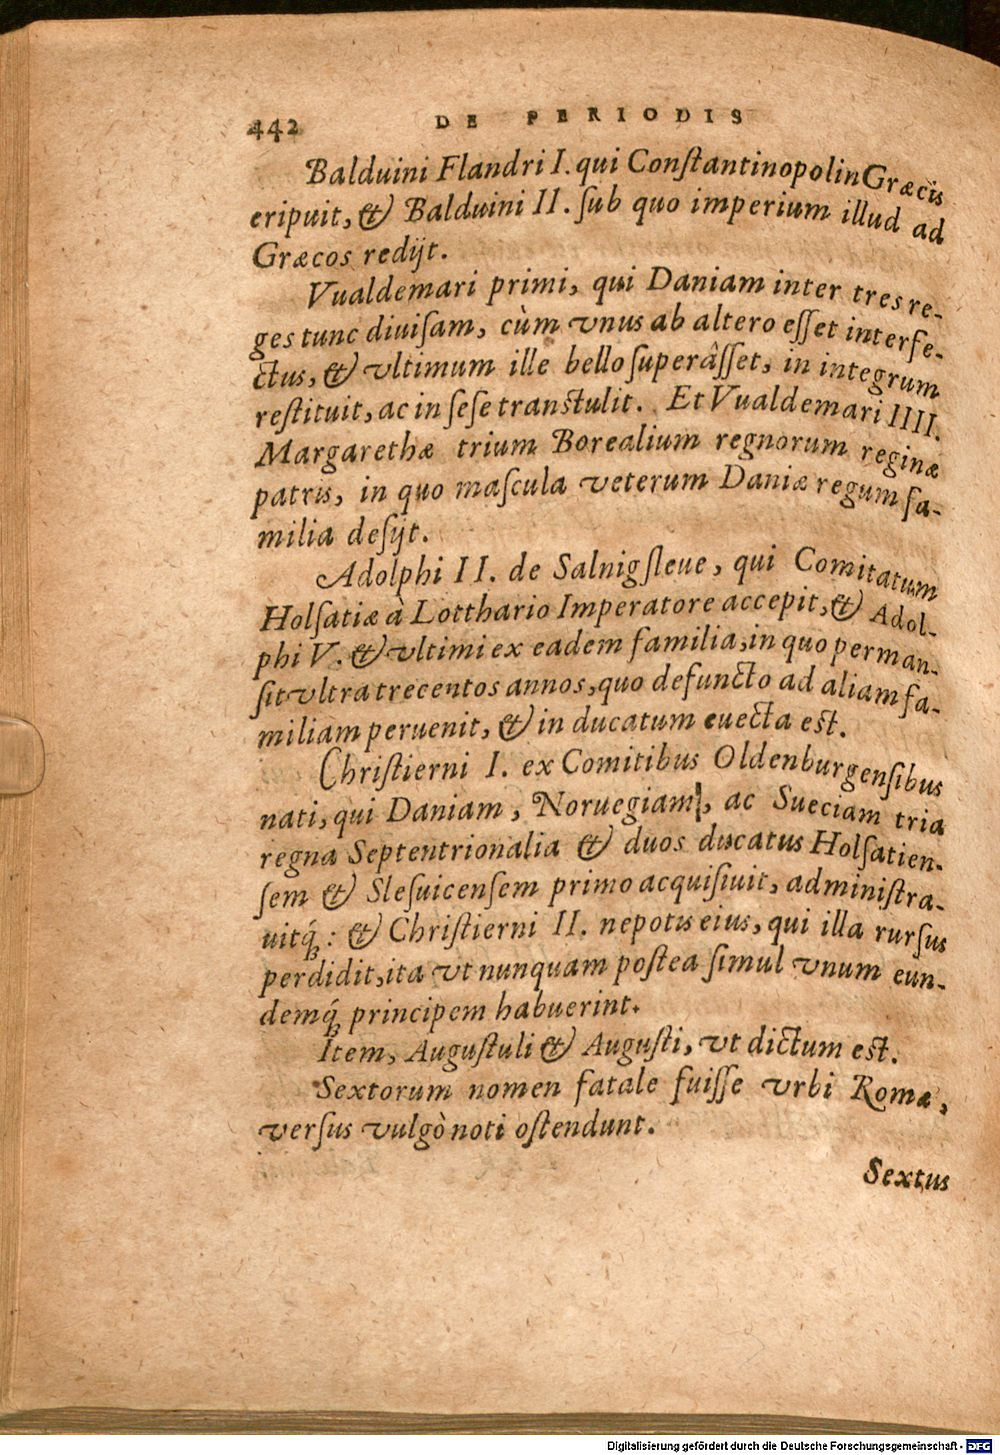 442 DE PERIODIS
Balduini Flandri I. qui Conſtantinopolin Græcis
eripuit, & Balduini II. ſub quo imperium illud ad
Græcos redijt.
Vualdemari primi, qui Daniam inter tres re-
ges tunc diuiſam, cùm vnus ab altero eſſet interfe-
ctus, & vltimum ille bello ſuperâſſet, in integrum
reſtituit, ac in ſeſe transtulit. Et Vualdemari IIII.
Margarethæ trium Borealium regnorum reginæ
patris, in quo maſcula veterum Daniæ regum fa-
milia deſijt.
Adolphi II. de Salnigſleue, qui Comitatum
Holſatiæ à Lotthario Imperatore accepit, & Adol-
phi V. & vltimi ex eadem familia, in quo perman-
ſit vltra trecentos annos, quo defuncto ad aliam fa-
miliam peruenit, & in ducatum euecta est.
Chriſtierni I. ex Comitibus Oldenburgenſibus
nati, qui Daniam, Noruegiam, ac Sueciam tria
regna Septentrionalia & duos ducatus Holſatien-
ſem & Sleſuicenſem primo acquiſiuit, adminiſtra-
uitq́;: & Chriſtierni II. nepotis eius, qui illa rurſus
perdidit, ita vt nunquam poſtea ſimul vnum eun-
demq́; principem habuerint.
Item, Auguſtuli & Auguſti, vt dictum est.
Sextorum nomen fatale fuiſſe vrbi Romæ,
verſus vulgò noti oſtendunt.
Sextus
Digitalisierung gefördert durch die Deutsche Forschungsgemeinschaft - DFG